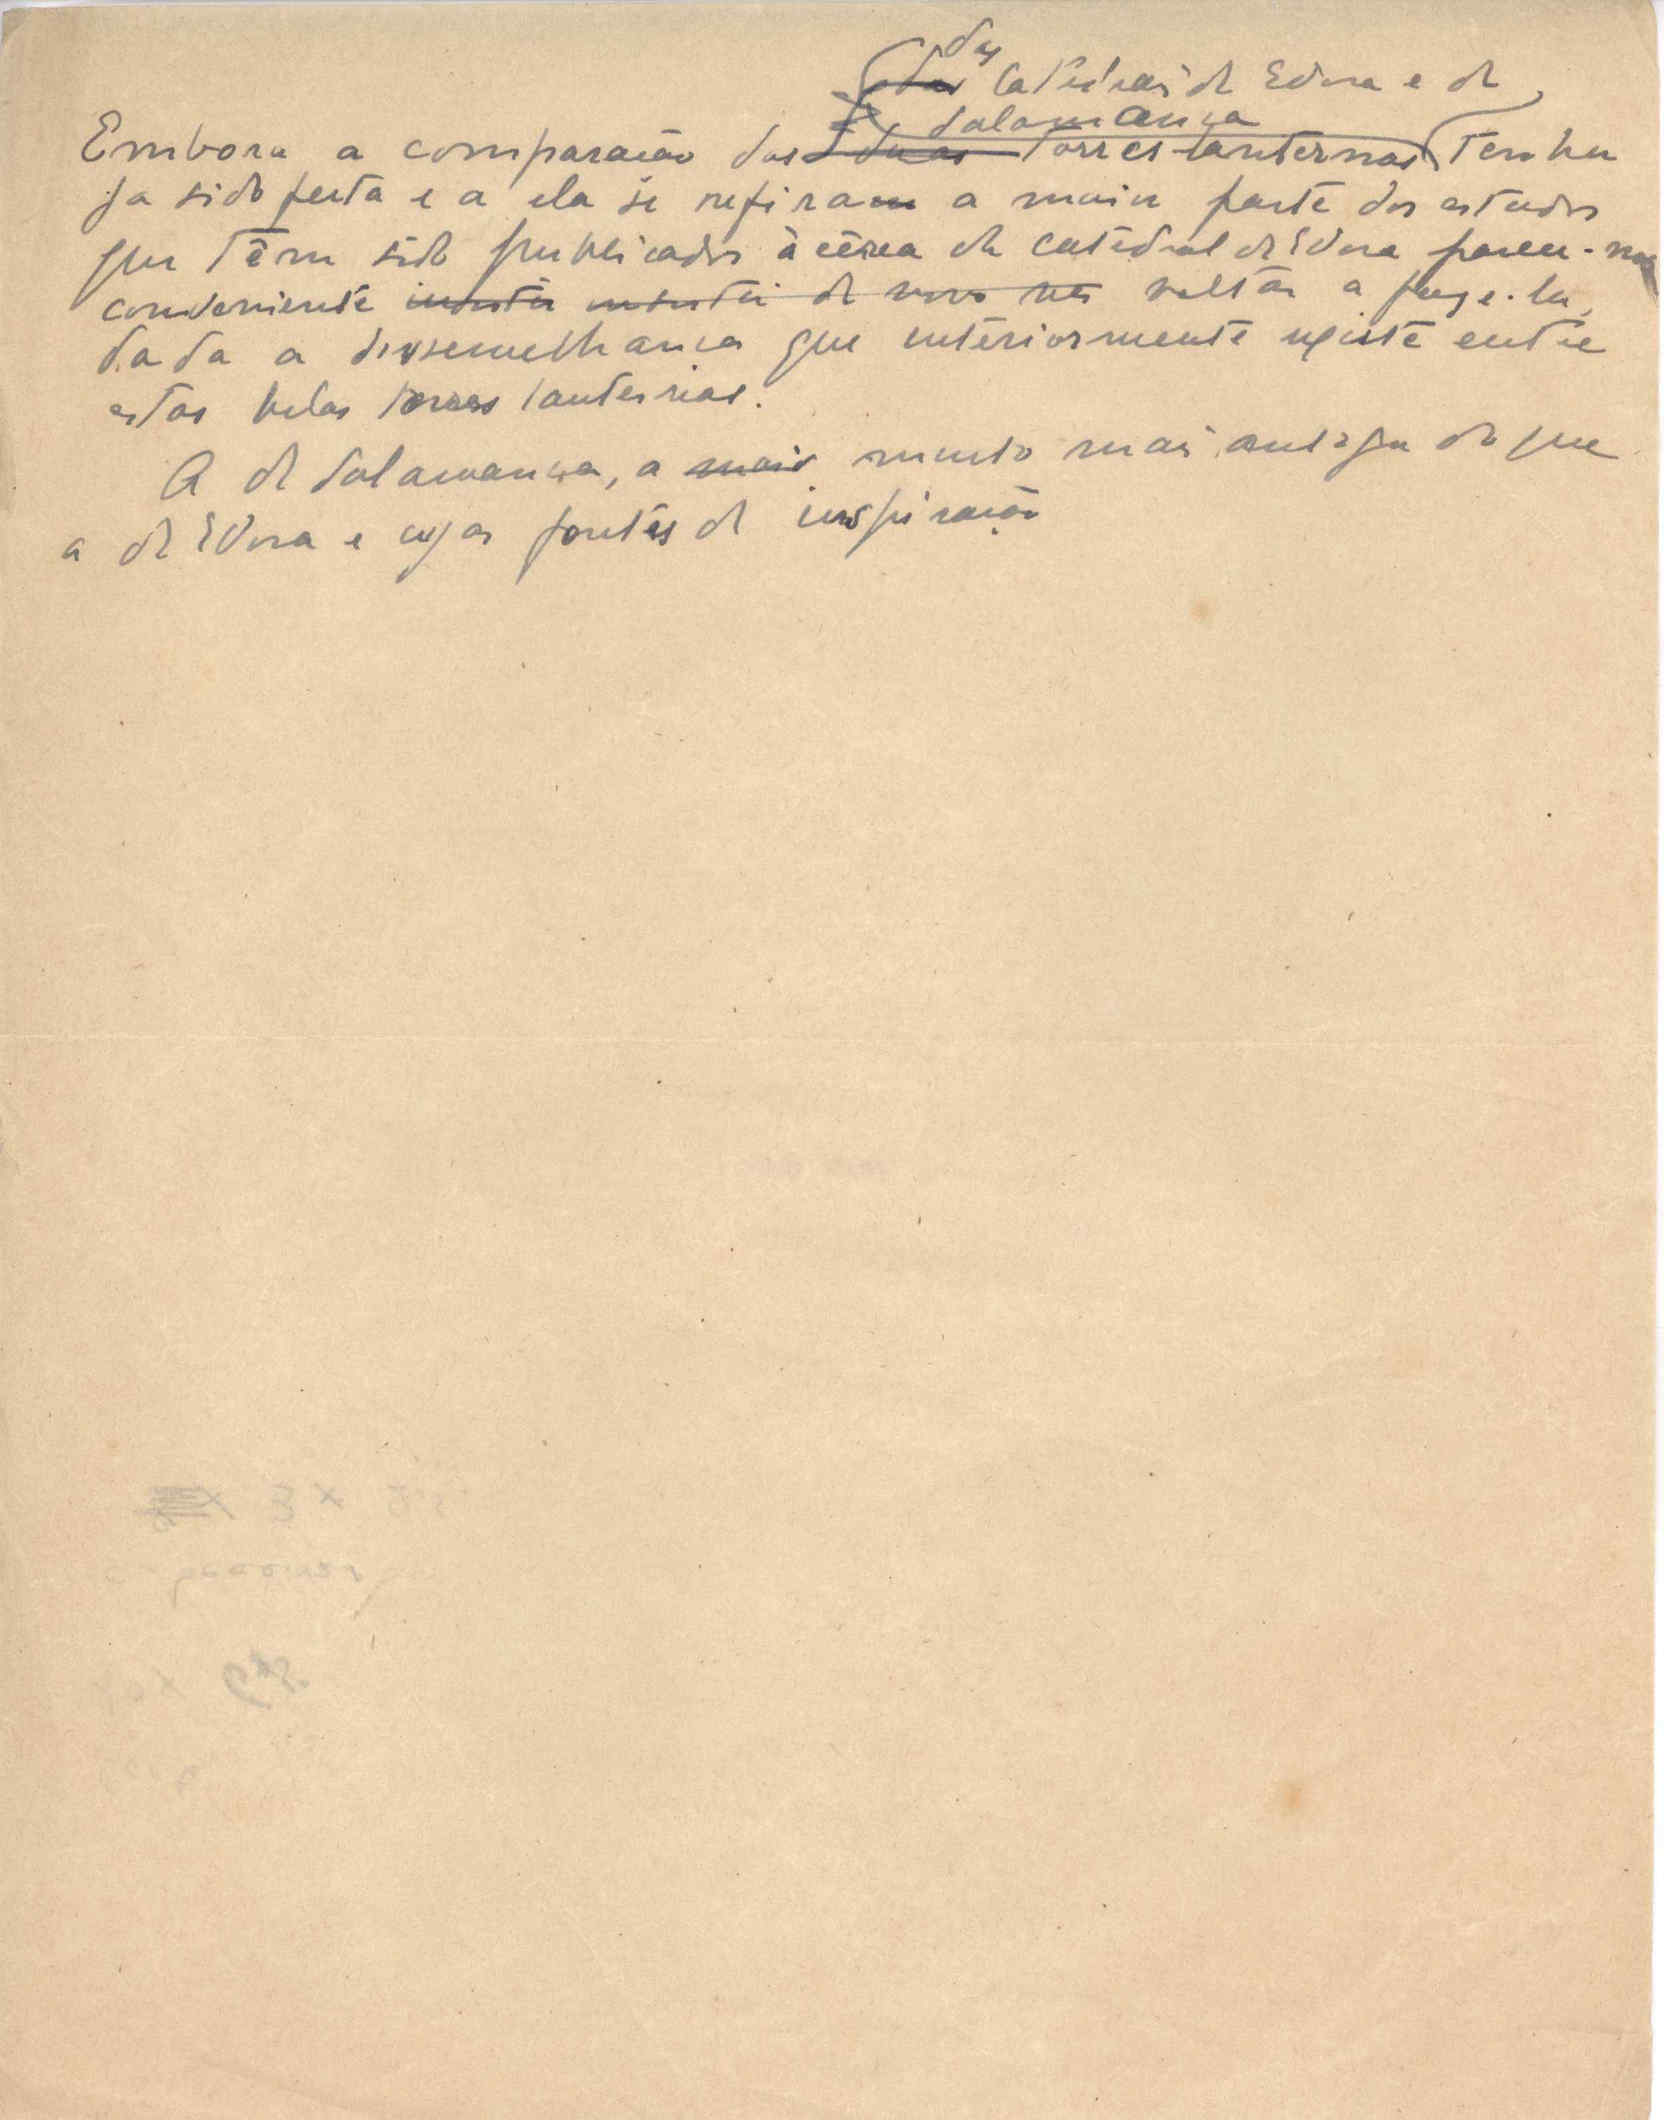 das
das Catedrais de Evora e de
Salamanca
Embora a comparação das duas torres lanternas tenha
ja sido feita e a ela se refiram a maior parte dos estudos
que têm sido publicados àcêrca da catedral de Evora parece-nos
conveniente insistir insistir de novo nes voltar a faze-la,
dada a dissemelhança que interiormente existe entre
estas belas torres lanternas.
A de Salamanca, a mais muito mais antiga do que
a de Evora e cujas fontes de inspiração